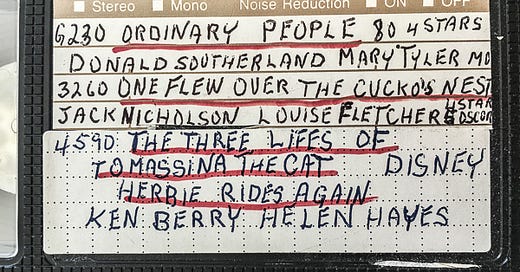 Stereo Mono Noise Reduction ON OFF
G230 ORDINARY PEOPLE 80 4 STARS
DONALD SOUTHERLAND MARY TYLER MO
3260 ONE FLEW OVER THE CUCKO'S NEST
JACK NICHOLSON LOUISE FLETCHER 4STAR
4590 THE THREE LIFES OF
TOMASSINA THE CAT DISNEY
HERBIE RIDES AGAIN
KEN BERRY HELEN HAYES